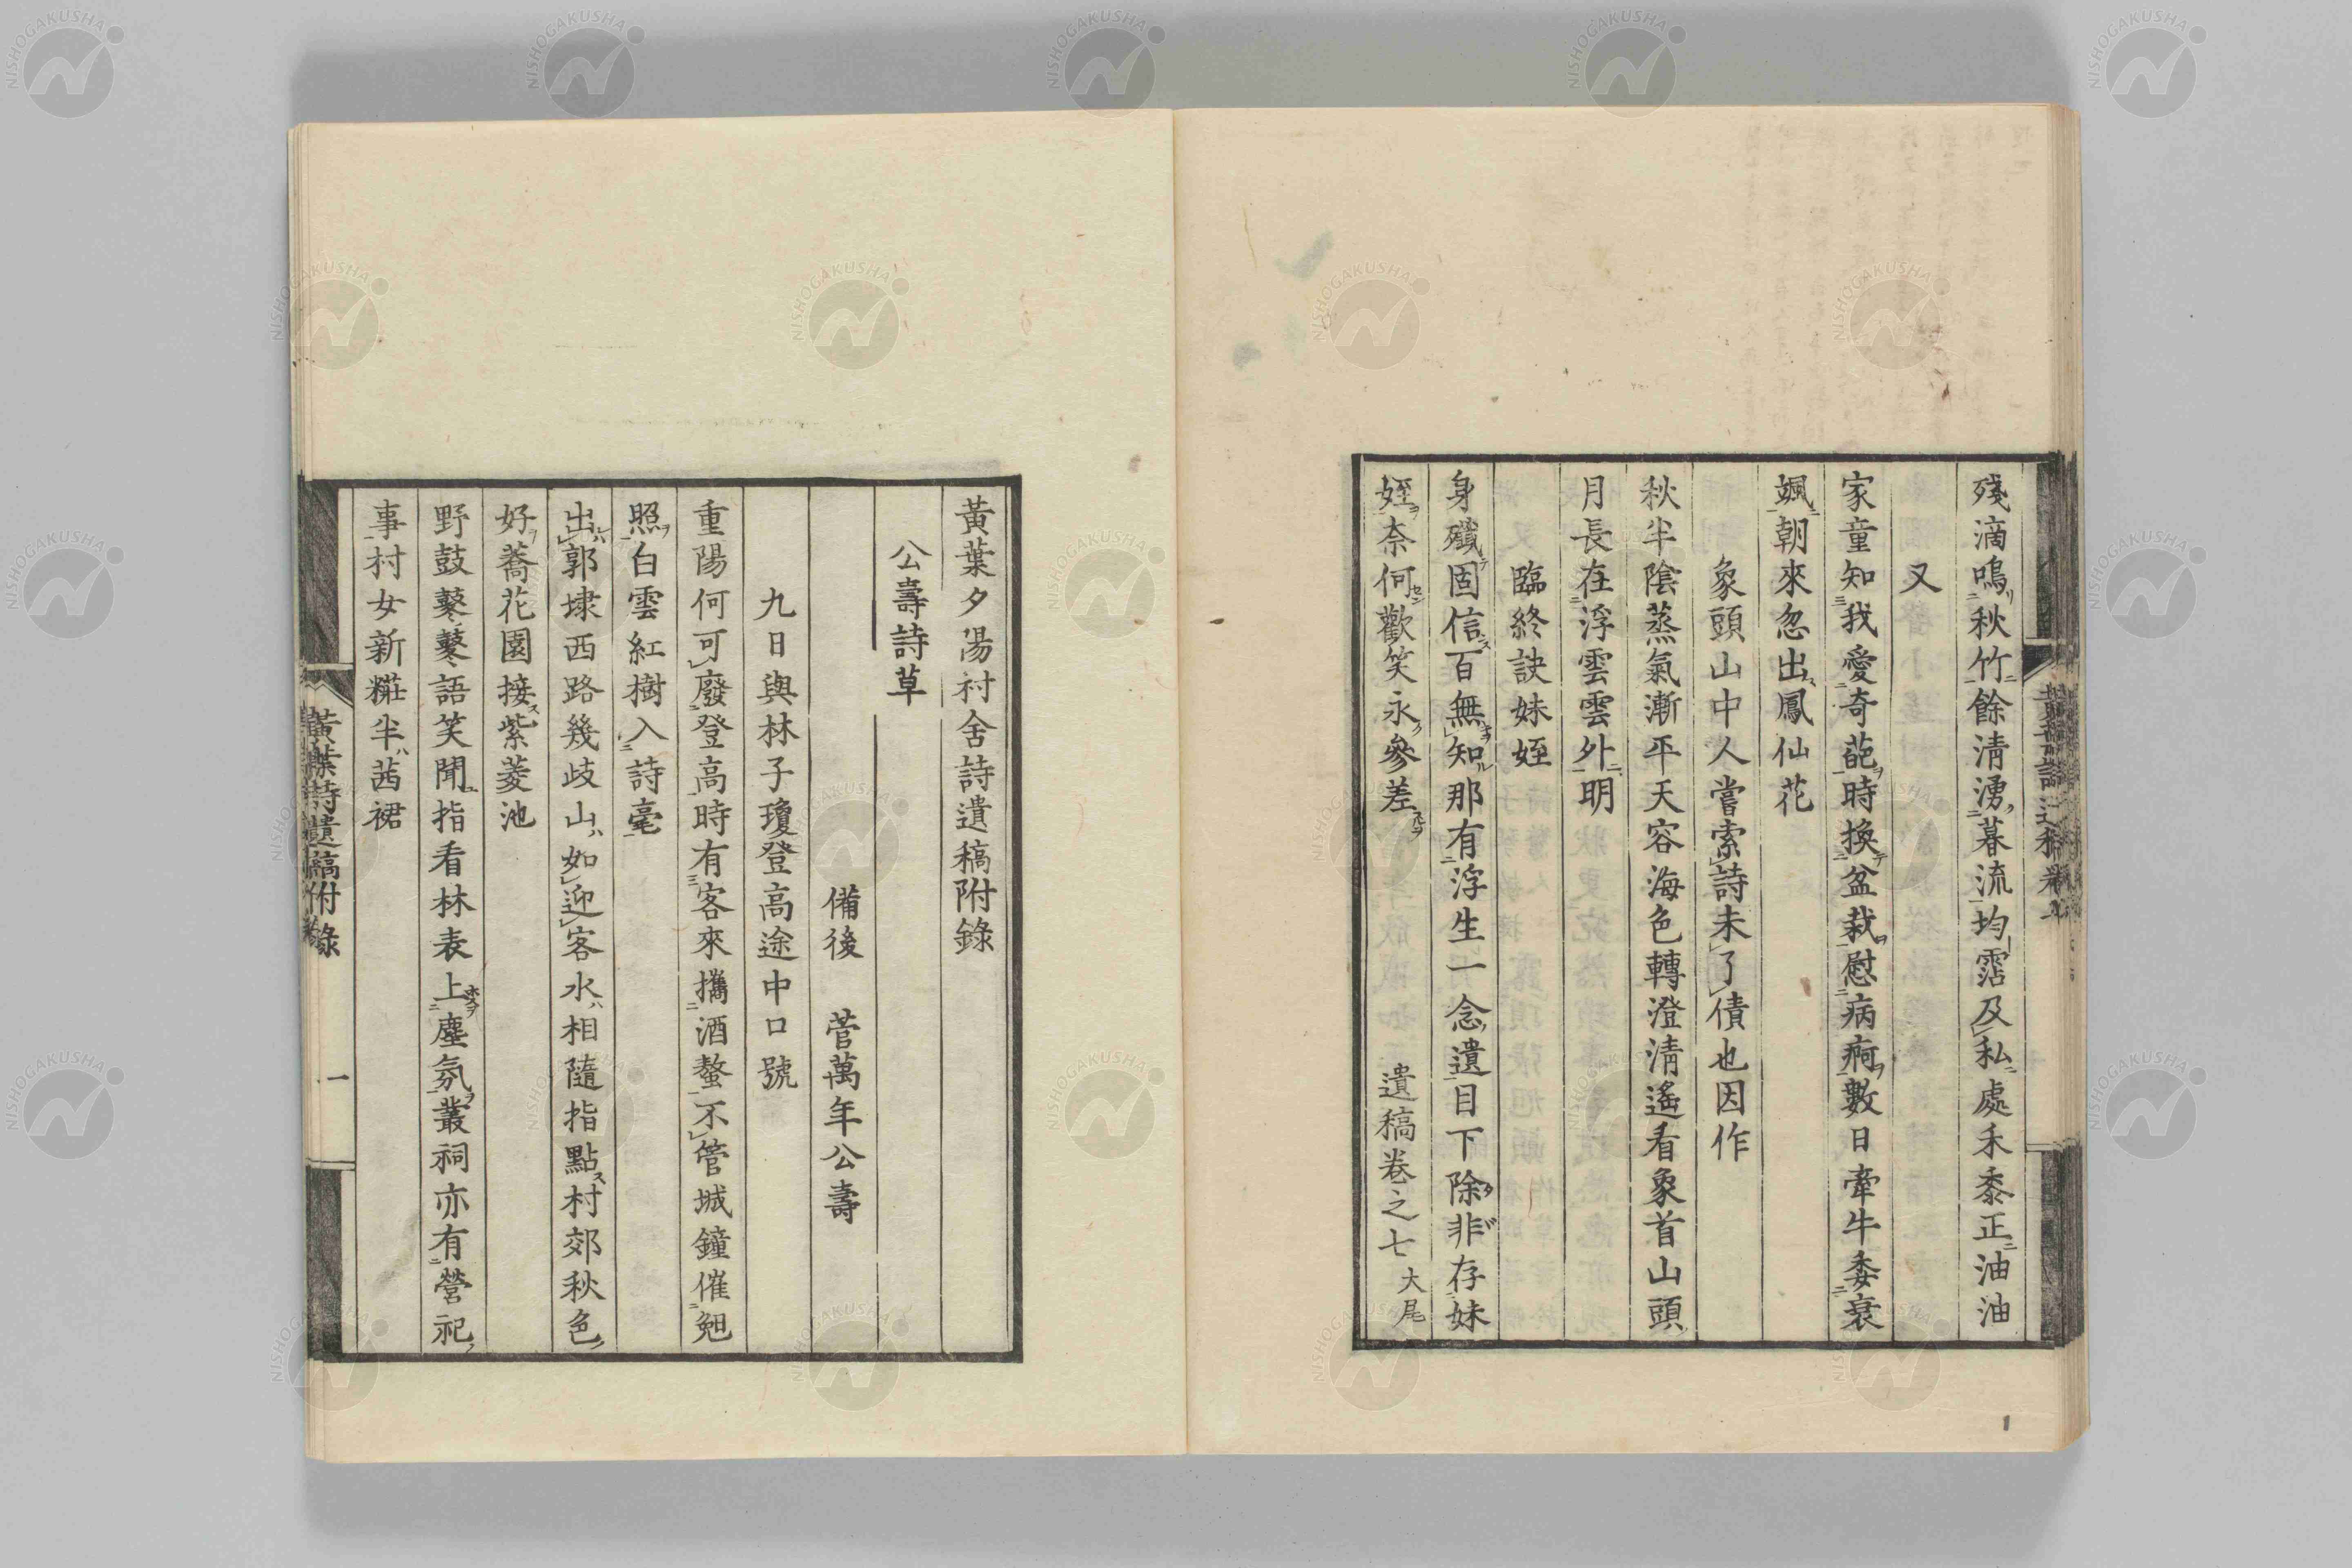 殘滴鳴秋竹餘淸湧暮流均霑及私處禾黍正油油
又
家童知我愛奇葩時換盆栽慰病痾數日牽牛委衰
颯朝來忽出鳳仙花
象頭山中人嘗索詩未了債也因作
秋半陰蒸氣漸平天容海色轉澄淸遙看象首山頭
月長在浮雲雲外明
臨終訣妹姪
身殲固信百無知那有浮生一念遺目下除非存妹
姪奈何歡笑永參差
遺稿卷之七大尾
黃葉夕陽村舍詩遺稿附錄
公壽詩草
備後 菅萬年公壽
九日與林子瓊登高途中口號
重陽何可廢登高時有客來攜酒螯不管城鐘催晚
照白雲紅樹入詩毫
出郭埭西路幾歧山如迎客水相隨指點村郊秋色
好蕎花園接紫菱池
野鼓鼕鼕語笑聞指看林表上塵氛叢祠亦有營祀
事村女新糚半茜裙
黃葉詩遺稿附錄
一
NISHOGAKUSHA